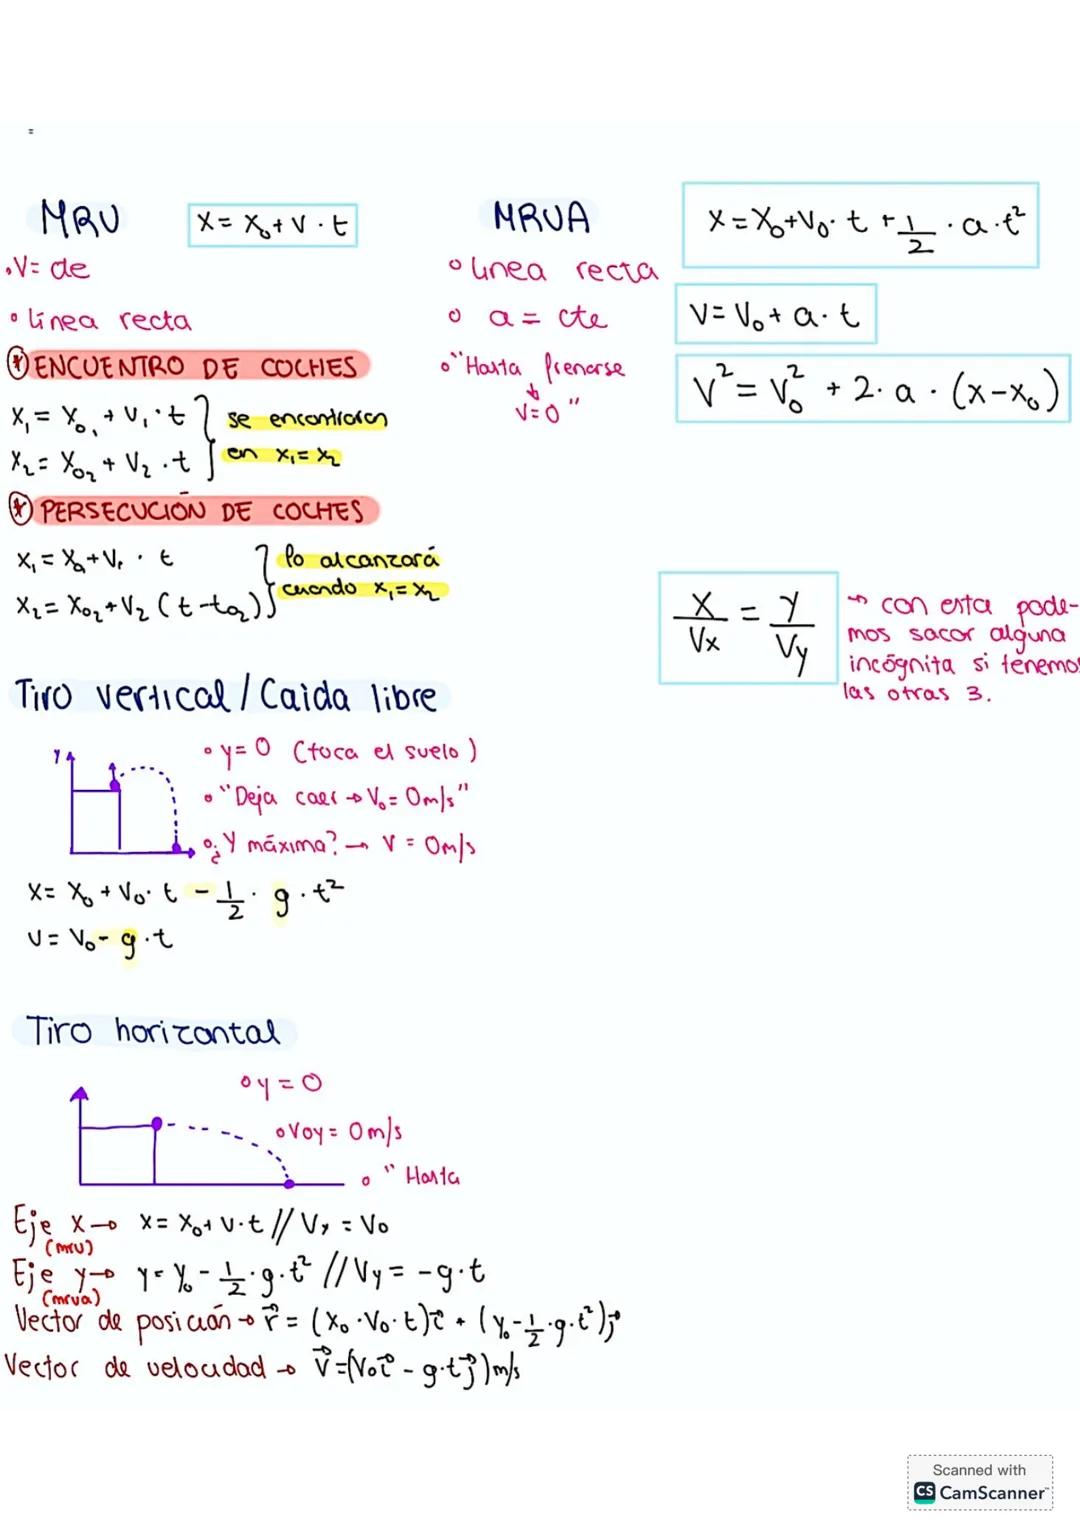 MRU
x = x₀ + v · t
• V = de
• línea recta
* ENCUENTRO DE COCHES
x₁ = x₀₁ + v₁ · t
x₂ = x₀₂ + v₂ · t
se encontraran
en x₁ = x₂
* PERSECUCIÓN DE COCHES
x₁ = x₀ + v₁ · t
x₂ = x₀₂ + v₂ (t - t₀₂)
lo alcanzará
cuando x₁ = x₂
MRUA
x = x₀ + v₀ · t + 1/2 · a · t²
° línea recta
° a = cte
v = v₀ + a · t
° "Hasta frenarse
↓
v = 0"
v² = v₀² + 2 · a · (x - x₀)
x/vx = y/vy
→ con esta pode-
mos sacar alguna
incógnita si tenemos
las otras 3.
Tiro vertical / Caida libre
y
• y = 0 (toca el suelo)
• "Deja caer → v₀ = 0m/s"
• ¿Y máxima? → v = 0m/s
x = x₀ + v₀ · t - 1/2 · g · t²
v = v₀ - g · t
Tiro horizontal
° y = 0
° v₀y = 0 m/s
° "Hasta
Eje x → x = x₀ + v · t // Vx = V₀
(mru)
Eje y → y = y₀ - 1/2 · g · t² // Vy = -g · t
(mrua)
Vector de posición → r⃗ = (x₀ · v₀ · t)i⃗ + (y₀ - 1/2 · g · t²)j⃗
Vector de velocidad → v⃗ = (v₀i⃗ - g · tj⃗) m/s
Scanned with
CS CamScanner™